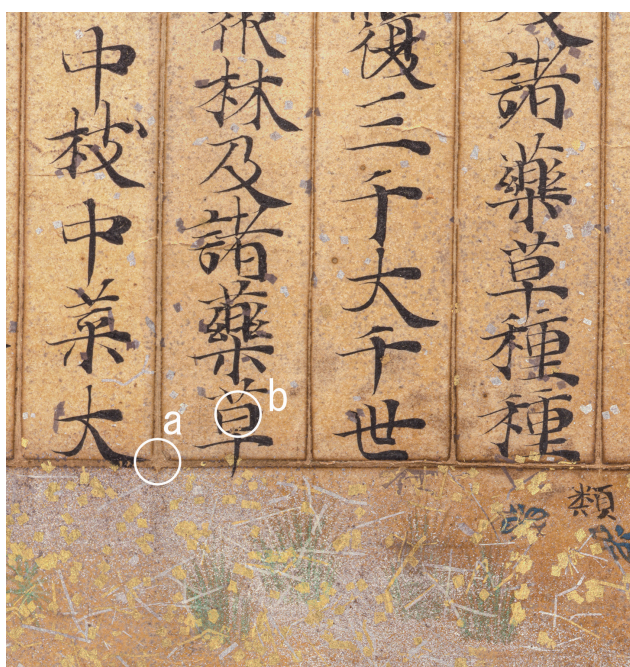 及諸藥草種種
類
三千大千世
林及諸藥草
中枝中葉大
a
b